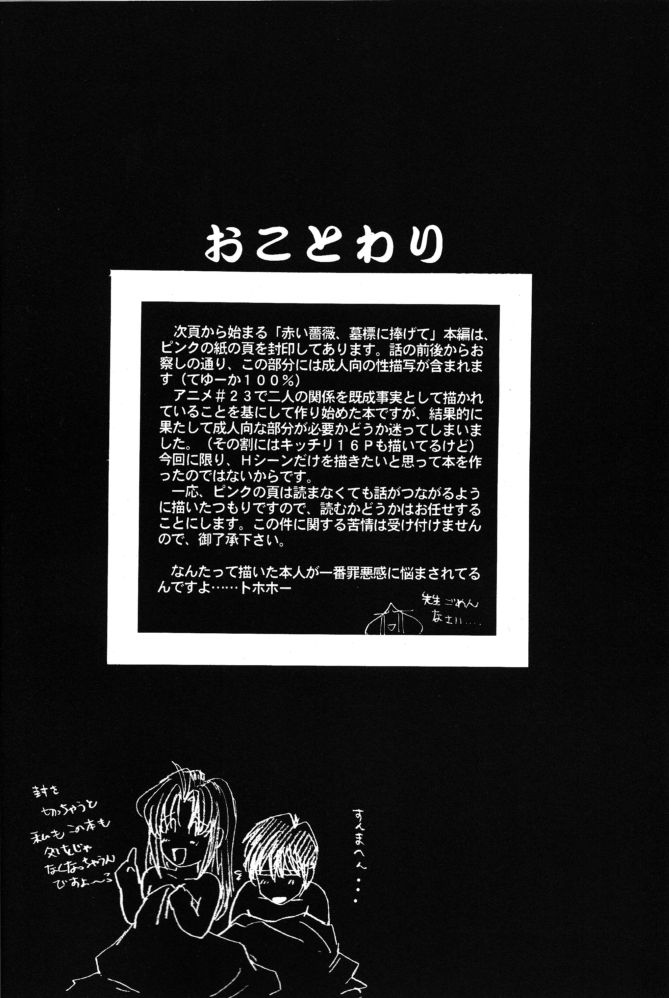 おことわり
次頁から始まる「赤い薔薇、墓標に捧げて」本編は、
ピンクの紙の頁を封印してあります。話の前後からお
察しの通り、この部分には成人向の性描写が含まれま
す（てゆーか１００％）
アニメ＃２３で二人の関係を既成事実として描かれ
ていることを基にして作り始めた本ですが、結果的に
果たして成人向な部分が必要かどうか迷ってしまいい
ました。（その割にはキッチリ１６Ｐも描いてるけど）
今回に限り、Ｈシーンだけを描きたいと思って本を作
ったのではないからです。
一応、ピンクの頁は読まなくても話がつながるよう
に描いたつもりですので、読むかどうかはお任せする
ことにします。この件に関する苦情は受け付けません
ので、御了承下さい。
なんたって描いた本人が一番罪悪感に悩まされてる
んですよ……トホホー
先生ごめん
なさい....
封を
切っちゃうと
私もこの本も
処女じゃ
なくなっちゃうん
ですよ〜
すんまへん...